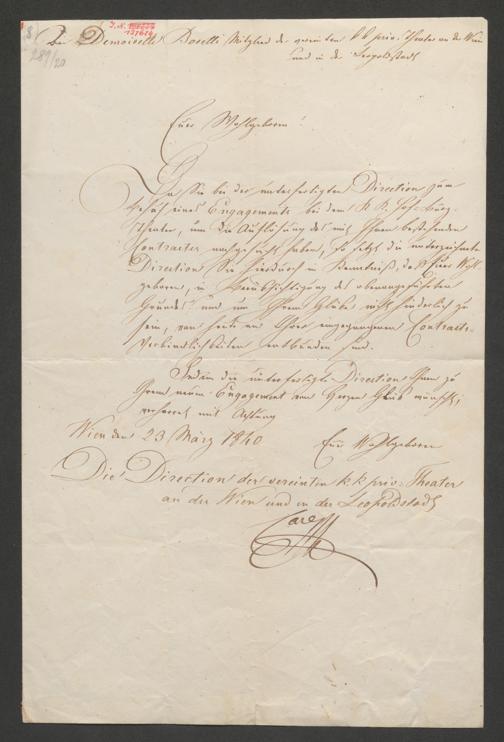 Demoiselle Mitglied der vereinten k k priv. Theater an der Wien
und in der Leopoldstadt
289/20
Euer Wohlgeboren!
Da Sie bei der unterfertigten Direction zum
Behuf eines Engagements bei dem K. K. Hof-Burg-
Theater, um die Auflösung des mit Ihnen bestehenden
Contractes nachgesucht haben, so setzt die unterzeichnete
Direction Sie hierdurch in Kenntniß, daß Euer Wohl-
geboren, in Berücksichtigung des obenangeführten
Grundes und um Ihrem Glücke nicht hinderlich zu
sein, von Seite Ihrer eingegangenen Contracts-
Verbindlichkeiten entbunden sind.
Indem die unterfertigte Direction Ihnen zu
Ihrem neuen Engagement von Herzen Glück wünscht,
verharret mit Achtung
Wien den 23 März 1840
Euer Wohlgeboren
Die Direction der vereinten k k priv. Theater
an der Wien und in der Leopoldstadt
Carl